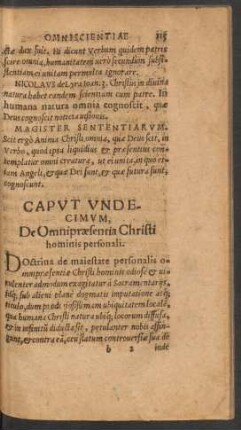 OMNISCIENTIAE 115
ctæ dum sint. Hi dicunt Verbum quidem patris
scire omnia, humanitatem verò secundum subst-
tentiam ei unitam permulta ignorare.
NICOLAVS de Lyra Ioan: 3. Christus in divina
natura habet eandem scientiam cum patre. In
humana natura omnia cognoscit, quæ
Deus cognoscit notitia visionis.
MAGISTER SENTENTIARVM.
Scit ergò Anima Christi omnia, quæ Deus scit, in
Verbo, quod ipsa liquidius & præsentius con-
templatur omni creatura, ut ei unita, in quo eti-
am Angeli, & quæ Dei sunt, & quæ futura sunt,
cognoscunt.
CAPVT VNDE-
CIMVM,
De Omnipræsentia Christi
hominis personali.
Doctrina de maiestate personalis o-
mnipræsentiæ Christi hominis odiosè &
admodum exagitatur à Sacramentarijs,
sub alieni planè dogmatis imputatione atq;
titulo, dum
quâ humana Christi natura ubiq; locorum diffusa,
& in infinitũ didacta sit, petulanter nobis affin-
gunt, & contra eã, ceu statum controversiæ sua de
h 2 inde